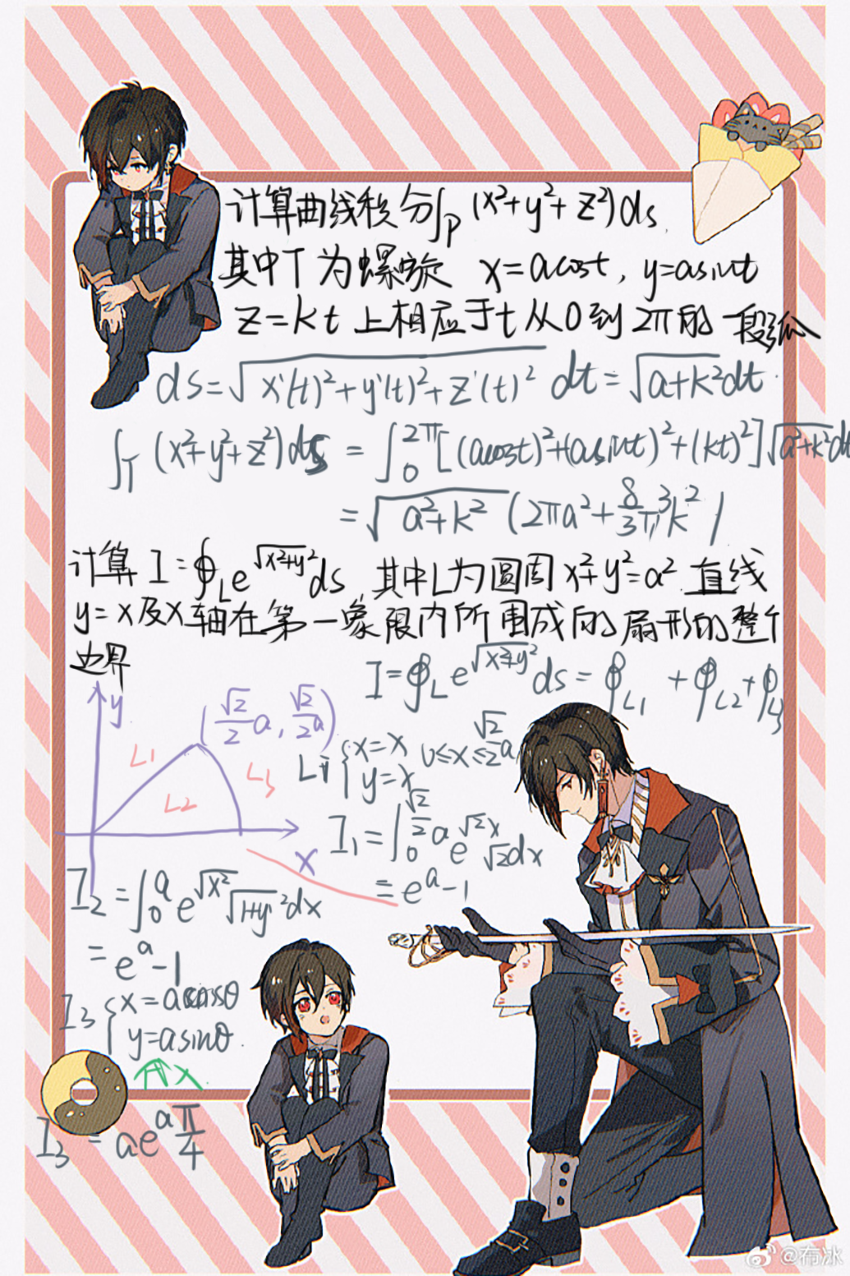 计算曲线积分∫_Γ (x²+y²+z²)ds
其中Γ为螺旋 x=acost, y=asint
z=kt 上相应于t从0到2π的一段弧
ds=√(x'(t)²+y'(t)²+z'(t)²) dt=√(a+k²)dt
∫_Γ (x²+y²+z²)ds = ∫₀^{2π}[(acost)²+(asint)²+(kt)²]√(a²+k²)dt
=√(a²+k²) (2πa²+8/3π³k²)
计算 I=∮_L e^{√(x²+y²)}ds, 其中L为圆周x²+y²=a² 直线
y=x及x轴在第一象限内所围成的扇形的整个
边界
I=∮_L e^{√(x²+y²)}ds=∮_{L1}+∮_{L2}+∮_{L3}
y
(√2/2 a, √2/2 a)
L1
L2
L3
x
{x=x 0≤x≤√2/2 a
y=x
I₁=∫₀^{√2/2 a} e^{√2x} √2dx
=e^a-1
I₂=∫₀^a e^{√x²}√(1+y'²)dx
=e^a-1
I₃{x=acosθ
y=asinθ
I₃=ae^a π/4
@布冰